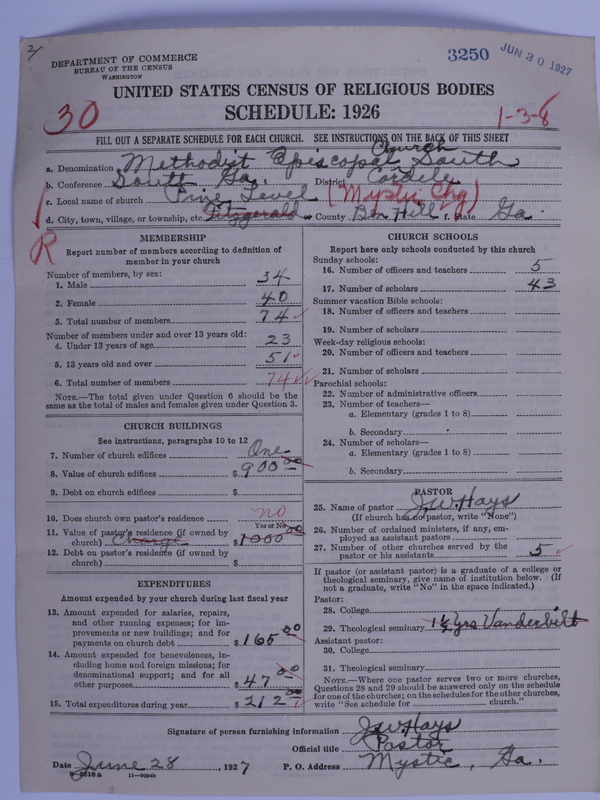 2/
DEPARTMENT OF COMMERCE
BUREAU OF THE CENSUS
WASHINGTON
3250
JUN 30 1927
UNITED STATES CENSUS OF RELIGIOUS BODIES
SCHEDULE: 1926
30
1-3-8
FILL OUT A SEPARATE SCHEDULE FOR EACH CHURCH. SEE INSTRUCTIONS ON THE BACK OF THIS SHEET
a. Denomination Methodist Episcopal Church South
b. Conference South Ga. District Cordele
c. Local name of church Pine Level (Mystic Chg)
d. City, town, village, or township, etc. Fitzgerald or County Ben Hill f. State Ga.
R
MEMBERSHIP
Report number of members according to definition of
member in your church
Number of members, by sex:
1. Male 34
2. Female 40
3. Total number of members 74
Number of members under and over 13 years old:
4. Under 13 years of age 23
5. 13 years old and over 51
6. Total number of members 74
NOTE.—The total given under Question 6 should be the
same as the total of males and females given under Question 3.
CHURCH BUILDINGS
See instructions, paragraphs 10 to 12
7. Number of church edifices One
8. Value of church edifices $ 900.00
9. Debt on church edifices $
10. Does church own pastor's residence no
Yes or No
11. Value of pastor's residence (if owned by
church) Charge $ 1000.00
12. Debt on pastor's residence (if owned by
church) $
EXPENDITURES
Amount expended by your church during last fiscal year
13. Amount expended for salaries, repairs,
and other running expenses; for im-
provements or new buildings; and for
payments on church debt $ 165.00
14. Amount expended for benevolences, in-
cluding home and foreign missions; for
denominational support; and for all
other purposes $ 47.00
15. Total expenditures during year $ 212.00
CHURCH SCHOOLS
Report here only schools conducted by this church
Sunday schools:
16. Number of officers and teachers 5
17. Number of scholars 43
Summer vacation Bible schools:
18. Number of officers and teachers
19. Number of scholars
Week-day religious schools:
20. Number of officers and teachers
21. Number of scholars
Parochial schools:
22. Number of administrative officers
23. Number of teachers—
a. Elementary (grades 1 to 8)
b. Secondary
24. Number of scholars—
a. Elementary (grades 1 to 8)
b. Secondary
PASTOR
25. Name of pastor J.W. Hays
(If church has no pastor, write "None")
26. Number of ordained ministers, if any, em-
ployed as assistant pastors
27. Number of other churches served by the
pastor or his assistants 5
If pastor (or assistant pastor) is a graduate of a college or
theological seminary, give name of institution below. (If
not a graduate, write "No" in the space indicated.)
Pastor:
28. College
29. Theological seminary 1½ yrs Vanderbilt
Assistant pastor:
30. College
31. Theological seminary
NOTE.—Where one pastor serves two or more churches,
Questions 28 and 29 should be answered only on the schedule
for one of the churches; on the schedules for the other churches,
write "See schedule for church."
Signature of person furnishing information J.W. Hays
Official title Pastor
Date June 28, 1927 P. O. Address Mystic, Ga.